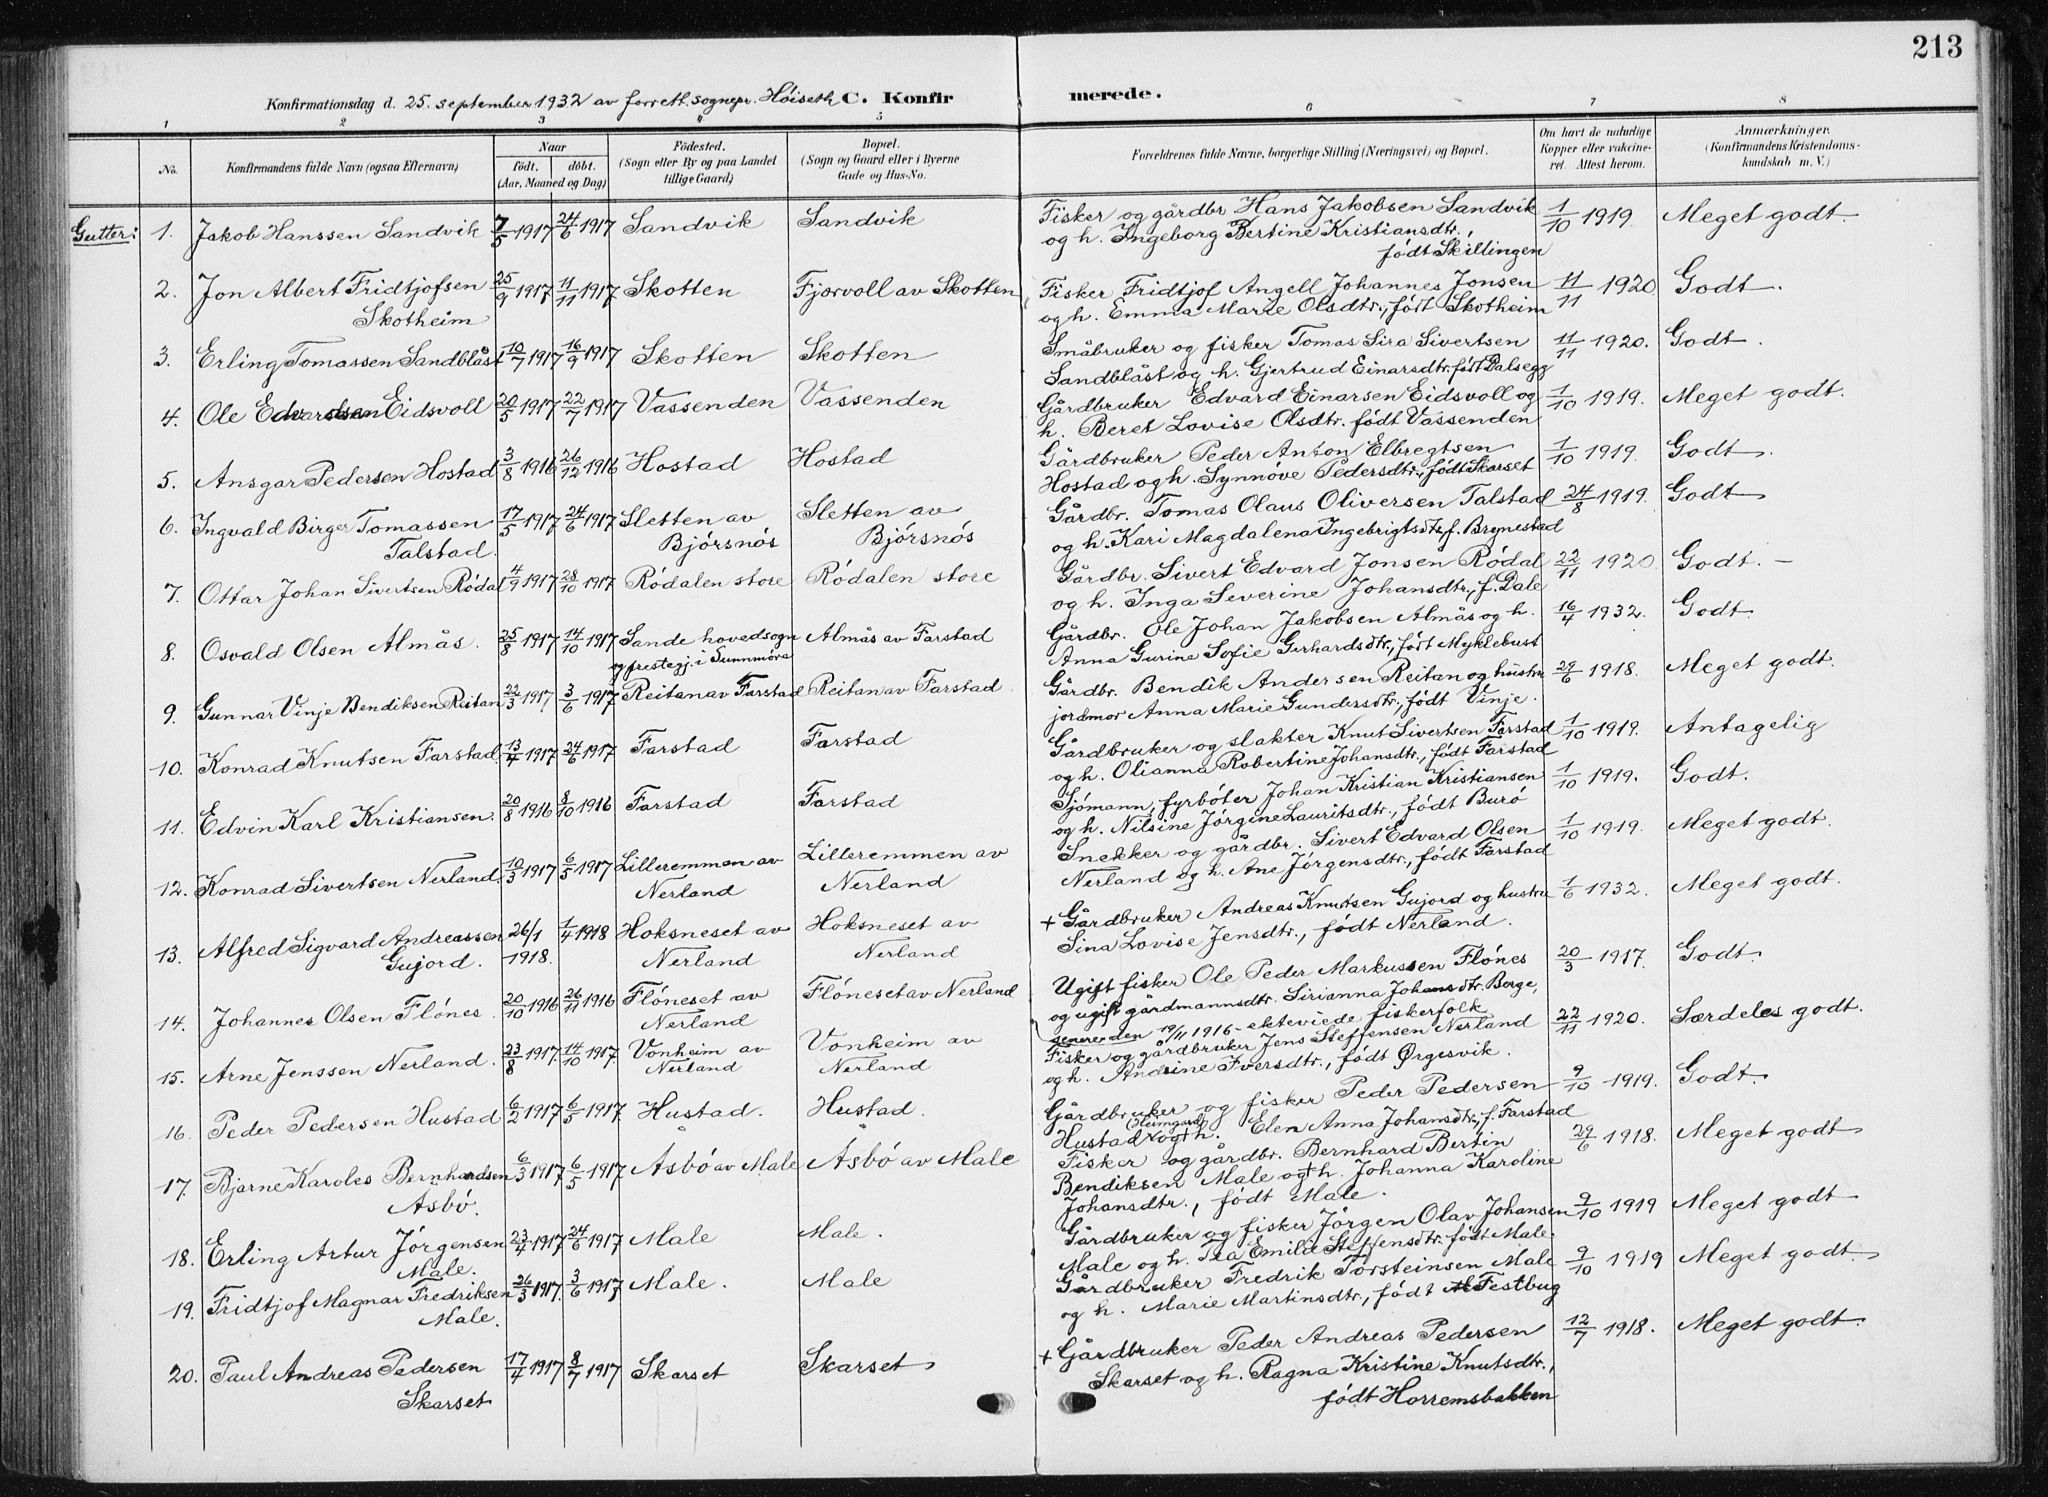 213
Konfirmationsdag d. 25. september 1932 av forrett. sognepr. Höiseth C. Konfirmerede.
1 2 3 4 5 6 7 8
No. Konfirmandens fulde Navn (ogsaa Efternavn) Naar födt. döbt. (Aar, Maaned og Dag) Födested. (Sogn eller By og paa Landet tillige Gaard) Bopæl. (Sogn og Gaard eller i Byerne Gade og Hus-No. Forældrenes fulde Navne, borgerlige Stilling (Næringsvei) og Bopæl. Om havt de naturlige Kopper eller vaccineret. Attest herom. Anmærkninger. (Konfirmandens Kristendomskundskab m. V.)
Gutter:
1. Jakob Hanssen Sandvik 7/5 1917 24/6 1917 Sandvik Sandvik Fisker og gårdbr Hans Jakobsen Sandvik 1/10 1919. Meget godt.
og h. Ingeborg Bertine Kristiansdtr.,
født Skillingen
2. Jon Albert Fridtjofsen 25/9 1917 11/11 1917 Skotten Fjørvoll av Skotten Fisker Fridtjof Angell Johannes Jonsen 11/11 1920 Godt.
Skotheim og h. Emma Marie Olsdtr., født Skotheim
3. Erling Tomassen Sandblåst 10/7 1917 16/9 1917 Skotten Skotten Småbruker og fisker Tomas Sira Sivertsen 11/11 1920. Godt.
Sandblåst og h. Gjertrud Einarsdtr. født Dalsegg
4. Ole Edvardsen Eidsvoll 20/5 1917 22/7 1917 Vassenden Vassenden Gårdbruker Edvard Einarsen Eidsvoll og 1/10 1919. Meget godt.
h. Beret Lovise Olsdtr. født Vassenden
5. Ansgar Pedersen Hostad 3/8 1916 26/12 1916 Hostad Hostad Gårdbruker Peder Anton Elbregtsen 1/10 1919. Godt.
Hostad og h. Synnöve Pedersdtr., født Skarset
6. Ingvald Birger Tomassen 17/5 1917 24/6 1917 Sletten av Sletten av Gårdbr. Tomas Olaus Oliversen Talstad 24/8 1919. Godt
Talstad. Björsnös Björsnös og h. Kari Magdalena Ingebrigtsdtr, f. Brynestad
7. Ottar Johan Sivertsen Rödal 4/9 1917 28/10 1917 Rödalen store Rödalen store Gårdbr. Sivert Edvard Jonsen Rödal 22/11 1920 Godt. -
og h. Inga Severine Johansdtr., f. Dale
8. Osvald Olsen Almås. 25/8 1917 14/10 1917 Sande hovedsogn Almås av Farstad Gårdbr. Ole Johan Jakobsen Almås og h. 16/4 1932. Godt.
og prestegj. i Sunnmöre Anna Gurina Sofie Gerhardsdtr., født Myklebust
9. Gunnar Vinje Bendiksen Reitan 22/3 1917 3/6 1917 Reitan av Farstad Reitan av Farstad. Gårdbr. Bendik Andersen Reitan og hustru 29/6 1918. Meget godt.
jordmor Anna Marie Gundersdtr., født Vinje.
10. Konrad Knutsen Farstad. 13/4 1917 24/6 1917 Farstad Farstad Gårdbruker og slakter Knut Sivertsen Farstad 1/10 1919. Antagelig
og h. Olianna Robertine Johansdtr., født Farstad
11. Edvin Karl Kristiansen. 20/8 1916 8/10 1916 Farstad Farstad Sjömann, fyrböter Johan Kristian Kristiansen 1/10 1919. Godt.
og h. Nilsine Jörgine Lauritsdtr., født Burö
12. Konrad Sivertsen Nerland. 10/3 1917 6/5 1917 Lilleremmen av Lilleremmen av Snekker og gårdbr. Sivert Edvard Olsen 1/10 1919. Meget godt.
Nerland Nerland Nerland og h. Ane Jörgensdtr., født Farstad
13. Alfred Sigvard Andreassen 26/1 1918. 1/4 1918 Hoksneset av Hoksneset av + Gårdbruker Andreas Knutsen Gujord og hustru 1/6 1932. Meget godt.
Gujord. Nerland Nerland Sina Lovise Jensdtr., født Nerland.
14. Johannes Olsen Flönes. 20/10 1916 26/11 1916 Flöneset av Flöneset av Nerland Ugift fisker Ole Peder Markussen Flönes 20/3 1917. Godt.
Nerland og ugift gårdmannsdtr. Sirianna Johansdtr. Berge,
senere den 19/11 1916 - ekteviede fiskerfolk
15. Arne Jenssen Nerland. 23/8 1917 14/10 1917. Vonheim av Vonheim av Fisker og gårdbruker Jens Steffensen Nerland 22/11 1920. Særdeles godt.
Nerland Nerland og h. Andrine Iversdtr., født Ørgesvik.
16. Peder Pedersen Hustad 6/2 1917 6/5 1917. Hustad. Hustad. Gårdbruker og fisker Peder Pedersen 9/10 1919. Godt.
Hustad (Heimgard) og + h. Elen Anna Johansdtr., f. Farstad
17. Bjarne Karoles Bernhardsen 6/3 1917 6/5 1917 Åsbö av Male Åsbö av Male Fisker og gårdbr. Bernhard Bertin 29/6 1918. Meget godt
Åsbö. Bendiksen Male og + h. Johanna Karoline
Johansdtr., født Male.
18. Erling Artur Jörgensen 23/4 1917 24/6 1917 Male Male. Gårdbruker og fisker Jörgen Olav Johansen 9/10 1919 Meget godt
Male. Male og h. Tea Emilie Steffensdtr. født Male.
19. Fridtjof Magnar Fredriksen 26/3 1917. 3/6 1917 Male. Male Gårdbruker Fredrik Torsteinsen Male 9/10 1919 Meget godt
Male. og h. Marie Martinsdtr., født Testbug
20. Paul Andreas Pedersen 17/4 1917 8/7 1917 Skarset Skarset + Gårdbruker Peder Andreas Pedersen 12/7 1918. Meget godt.
Skarset Skarset og h. Ragna Kristine Knutsdtr.,
født Horremsbakken